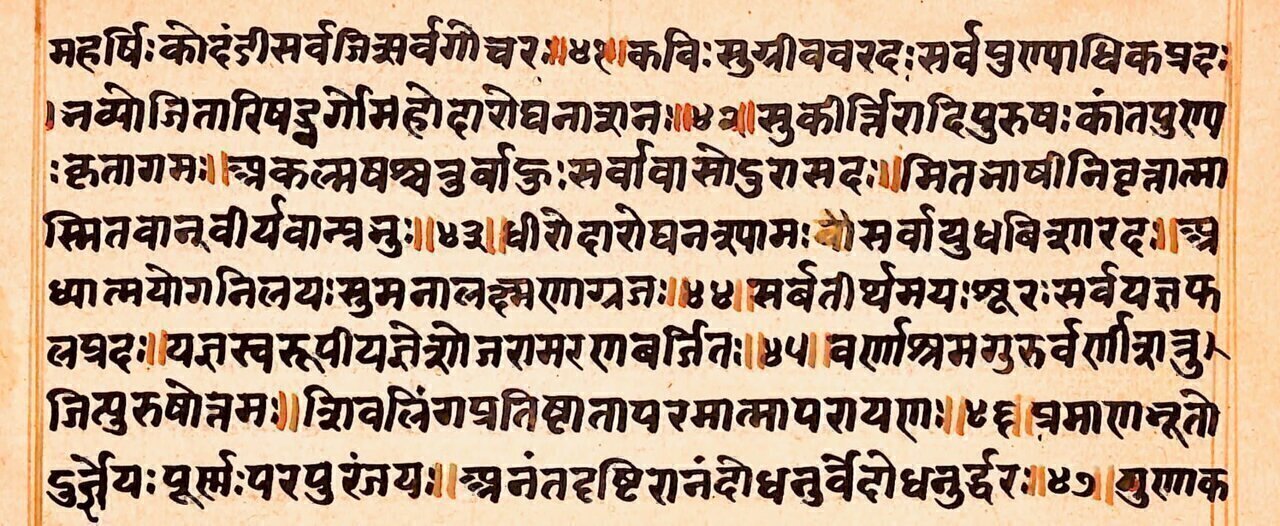 महर्षिः कोदंडी सर्वजित्सर्वगोचरः॥४१॥कविः सुग्रीववरदः सर्वपुण्याधिकप्रदः
।नव्योजितारिषड्वर्गोमहोदारोघनाशनः॥४२॥सुकीर्त्तिरादिपुरुषः कांतपुण्य
ः कृतागमः॥अकल्मषश्चतुर्बाहुः सर्वावासोदुरासदः॥मितभाषीनिवृत्तात्मा
स्मितवान्वीर्यवान्प्रभुः॥४३॥धीरोदारोघनश्यामः सर्वायुधबिशारदः॥अ
ध्यात्मयोगनिलयः सुमनालक्ष्मणाग्रजः॥४४॥सर्बतीर्थमयः शूरः सर्वयज्ञफ
लप्रदः॥यज्ञस्वरूपीयज्ञेशोजरामरणबर्जितः॥४५॥वर्णाश्रमगुरुर्वर्णीशत्रु
जित्पुरुषोत्तमः॥शिवलिंगप्रतिष्ठातापरमात्मापरायणः॥४६॥प्रमाणभूतो
दुर्ज्ञेयः पूर्णः परपुरंजयः॥अनंतदृष्टिरानंदोधनुर्वेदोधनुर्द्धरः॥४७॥गुणाक